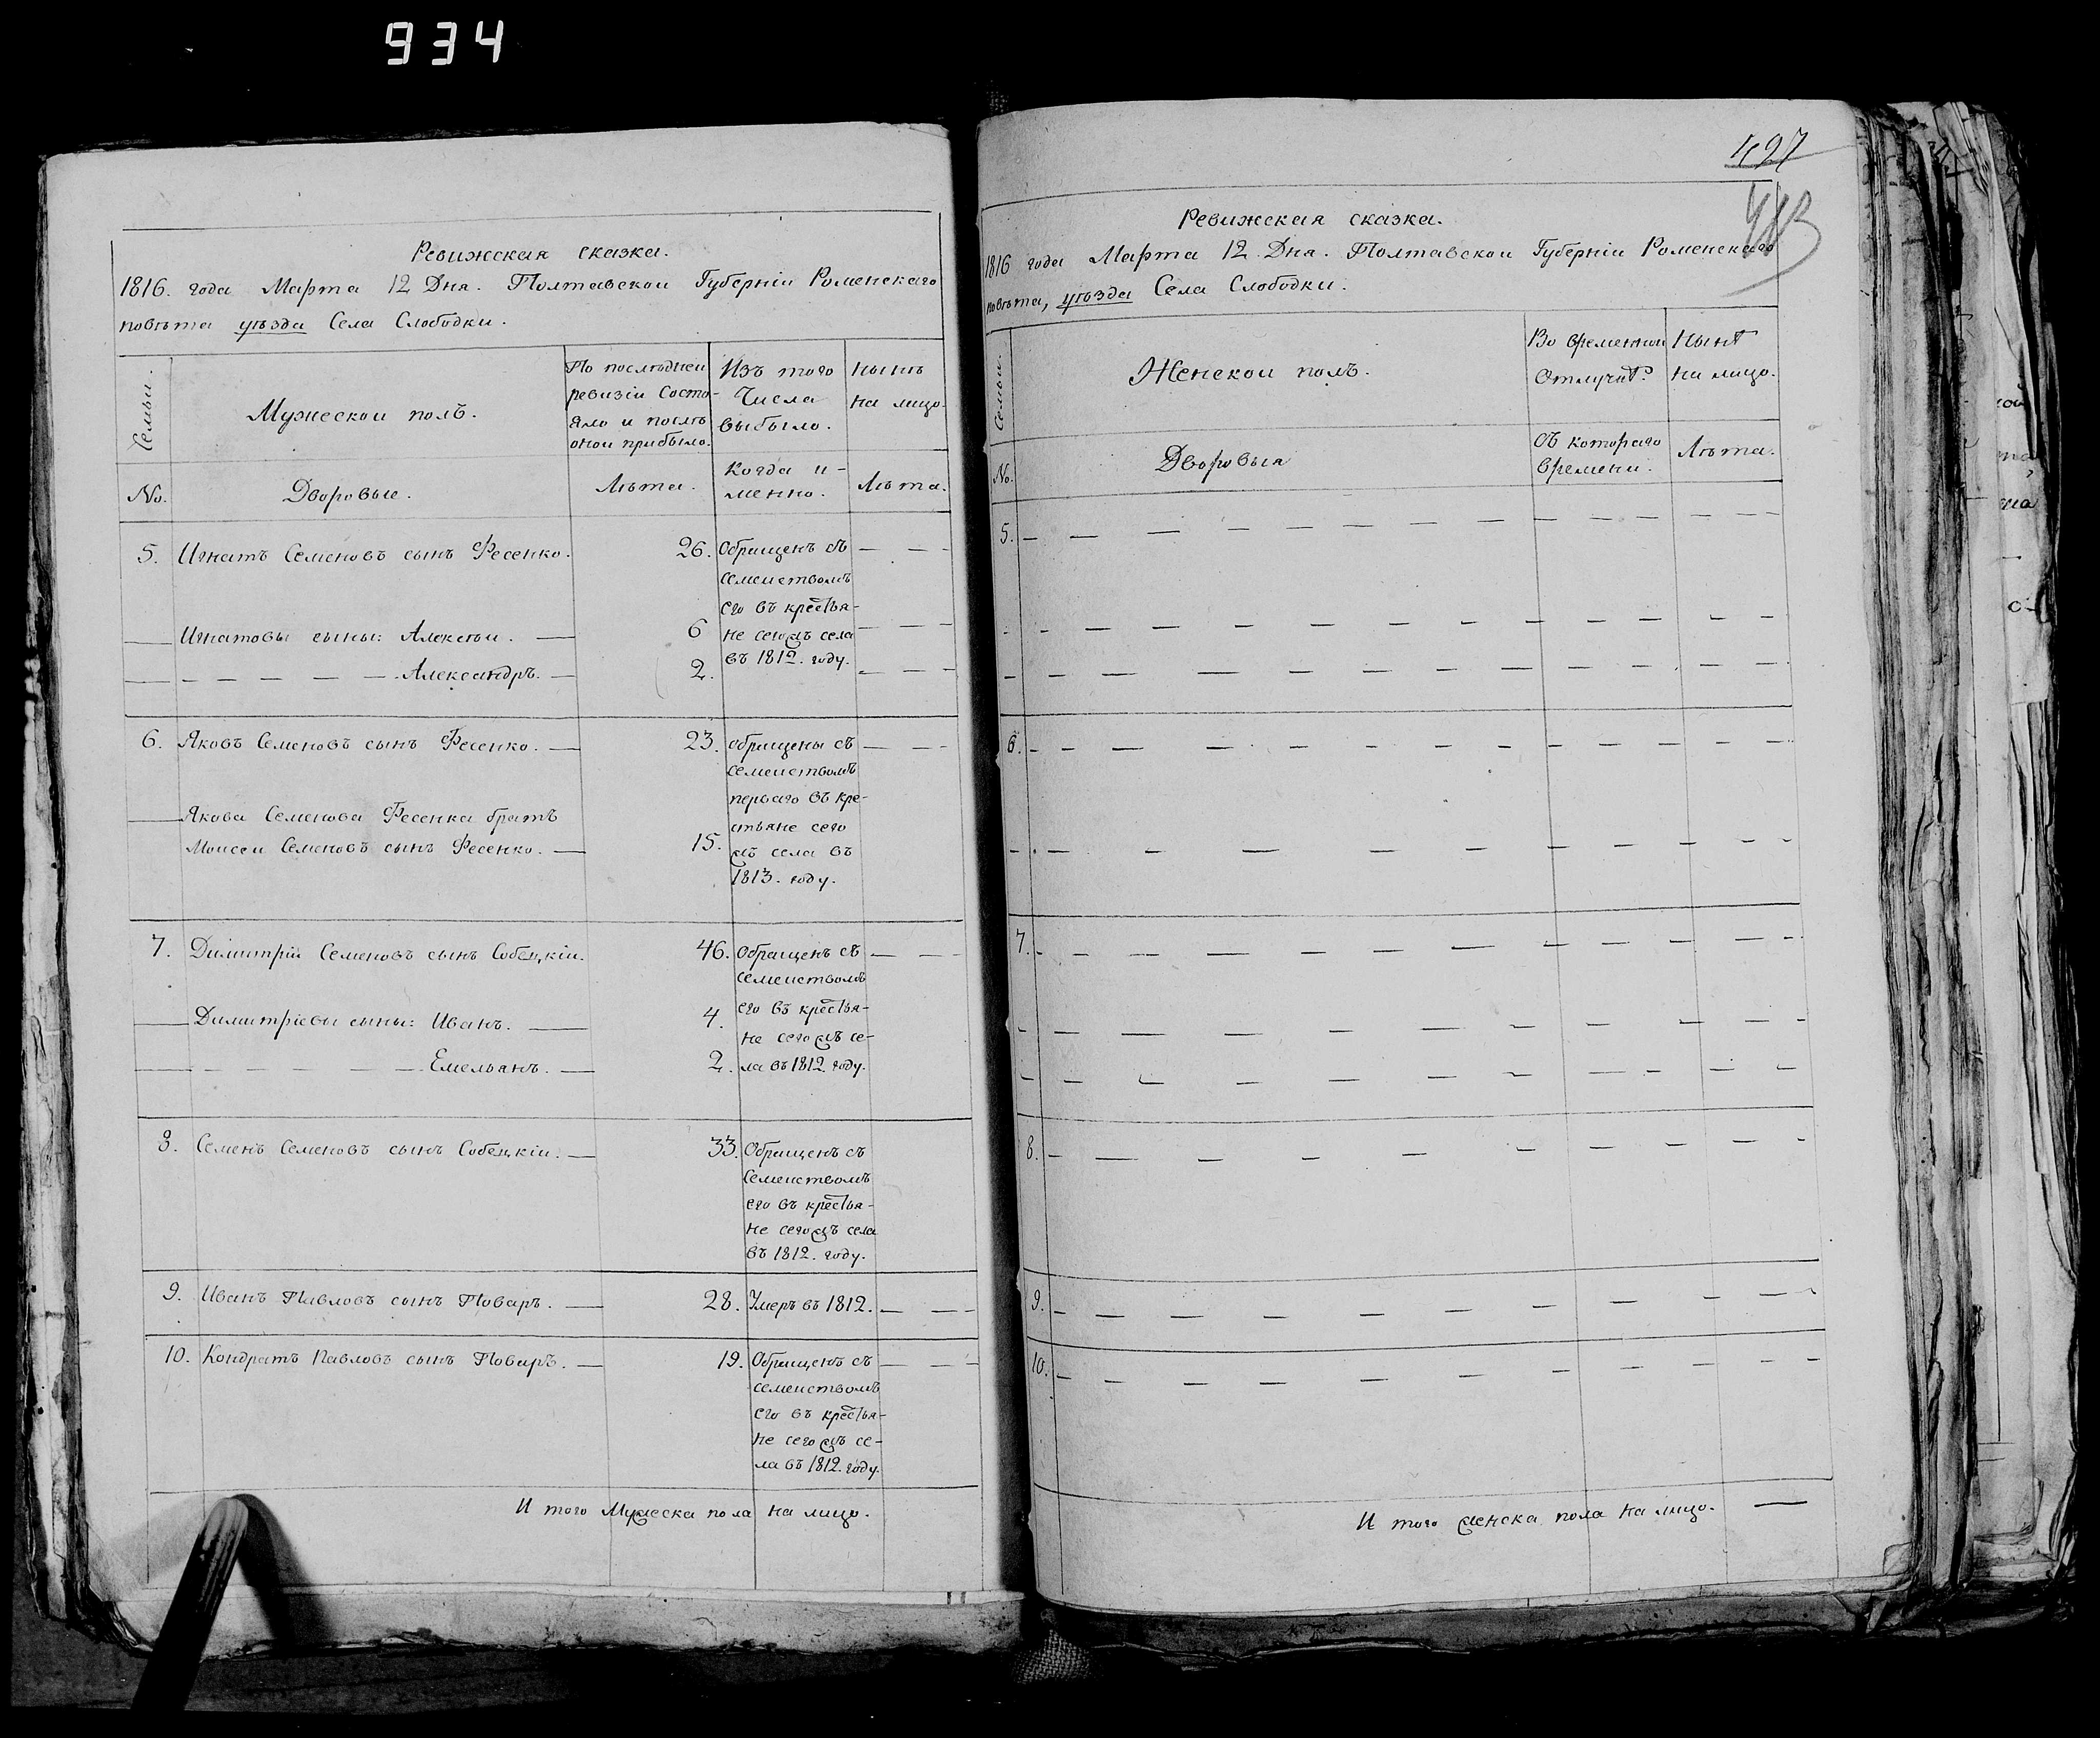 934
Ревижская сказка.
1816. года Марта 12 Дня. Полтавской Губернiи Роменскаго
повѣта уѣзда Села Слободки.
Семьи.
Мужеской полъ.
По послѣдней
ревизiи Состо-
яло и послѣ
оной прибыло.
Изъ того
Числа
выбыло.
Нынѣ
на лицо.
No.
Дворовые.
Лѣта.
Когда и-
менно.
Лѣта.
5. Игнатъ Семеновъ сынъ Фесенко. 26. Обращенъ съ — — -
семействомъ
его въ крестья-
— Игнатовы сыны: Алексѣй. — 6 не сегожъ села — — —
въ 1812. году.
— — — — — — Александръ. — 2. — — —
6. Яковъ Семеновъ сынъ Фесенко. — 23. обращены съ — — -
семействомъ
перваго въ кре-
— Якова Семенова Фесенка братъ
стьяне сего
Моисей Семеновъ сынъ Фесенко. — 15.
жъ села въ
1813. году.
7. Димитрiй Семеновъ сынъ Собецкiй. 46. Обращенъ съ — — -
семействомъ
— Димитрiевы сыны: Иванъ. — 4. его въ крестья-
не сегожъ се-
— — — — — — Емельянъ. — 2. ла въ 1812. году.
8. Семенъ Семеновъ сынъ Собецкiй. — 33. Обращенъ съ
Семействомъ
его въ крестья-
не сегожъ села
въ 1812. году.
9. Иванъ Павловъ сынъ Поваръ. — 28. Умеръ въ 1812. — — -
10. Кондратъ Павловъ сынъ Поваръ. — 19. Обращенъ съ — — -
семействомъ
его въ крестья-
не сегожъ се-
ла въ 1812. году.
И того Мужеска пола на лицо.
497
Ревижская сказка.
1816 года Марта 12. Дня. Полтавской Губернiи Роменскаго
повѣта, уѣзда Села Слободки.
Семьи.
Женской полъ.
Во временной
Отлучкѣ.
Нынѣ
на лицо.
No.
Дворовыя
Съ котораго
времени.
Лѣта.
5. — — — — — — — — — — — —
6. — — — — — — — — — — — —
7. — — — — — — — — — — —
8. — — — — — — — — — —
9. — — — — — — — — — —
10. — — — — — — — — — — —
И того женска пола на лицо. —